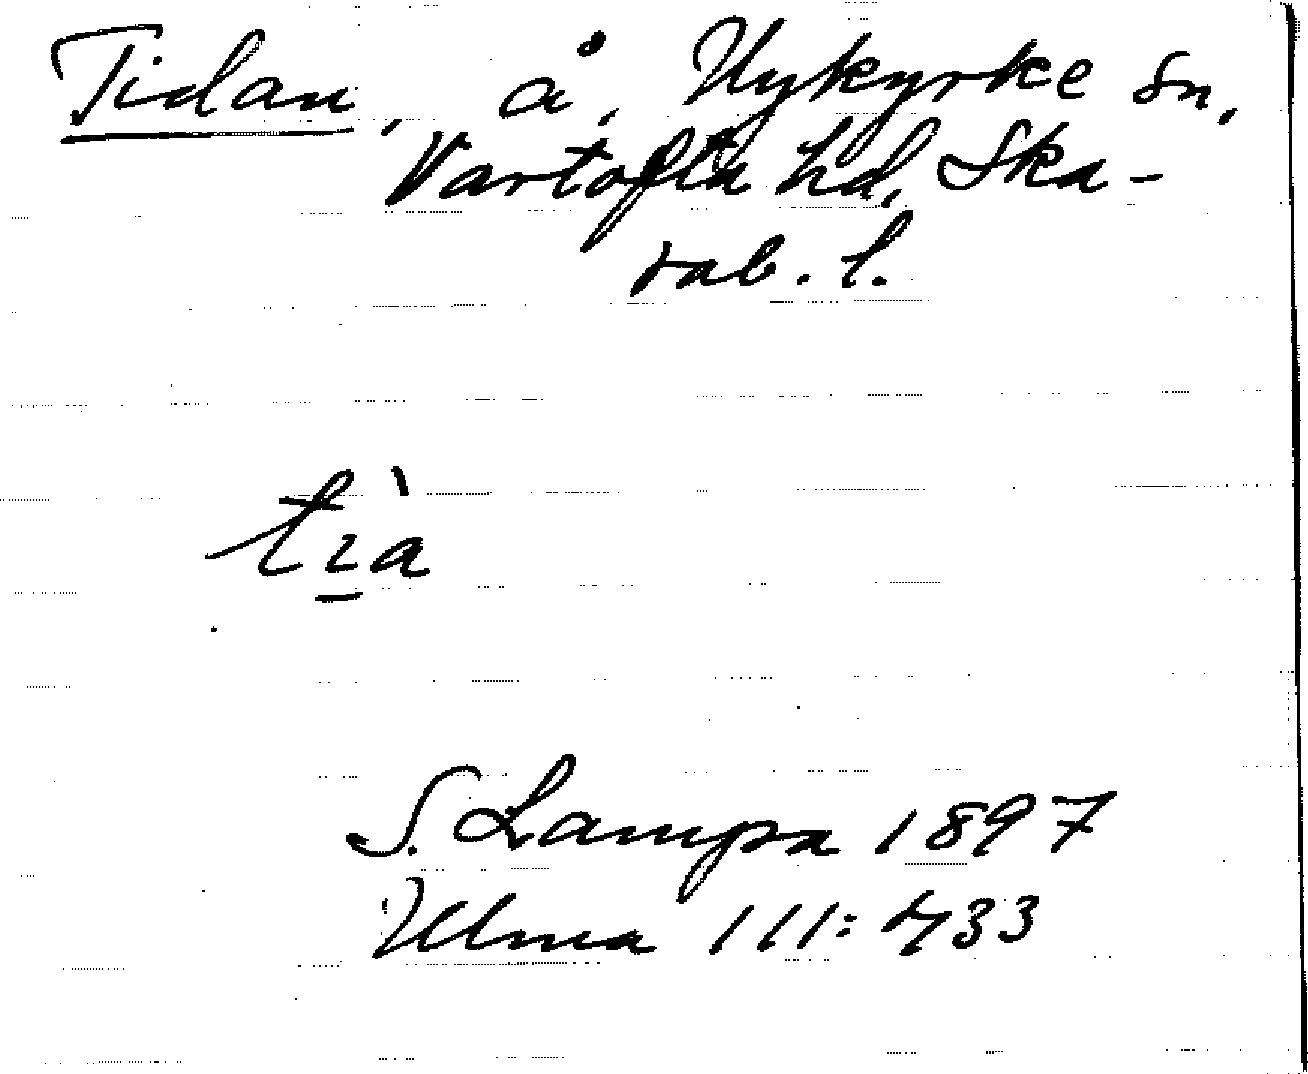 Tidan, å, Nykyrke sn,
Vartofta hd, Ska-
rab. l.
tɩ̠à
S. Lampa 1897
Ulma 111:433